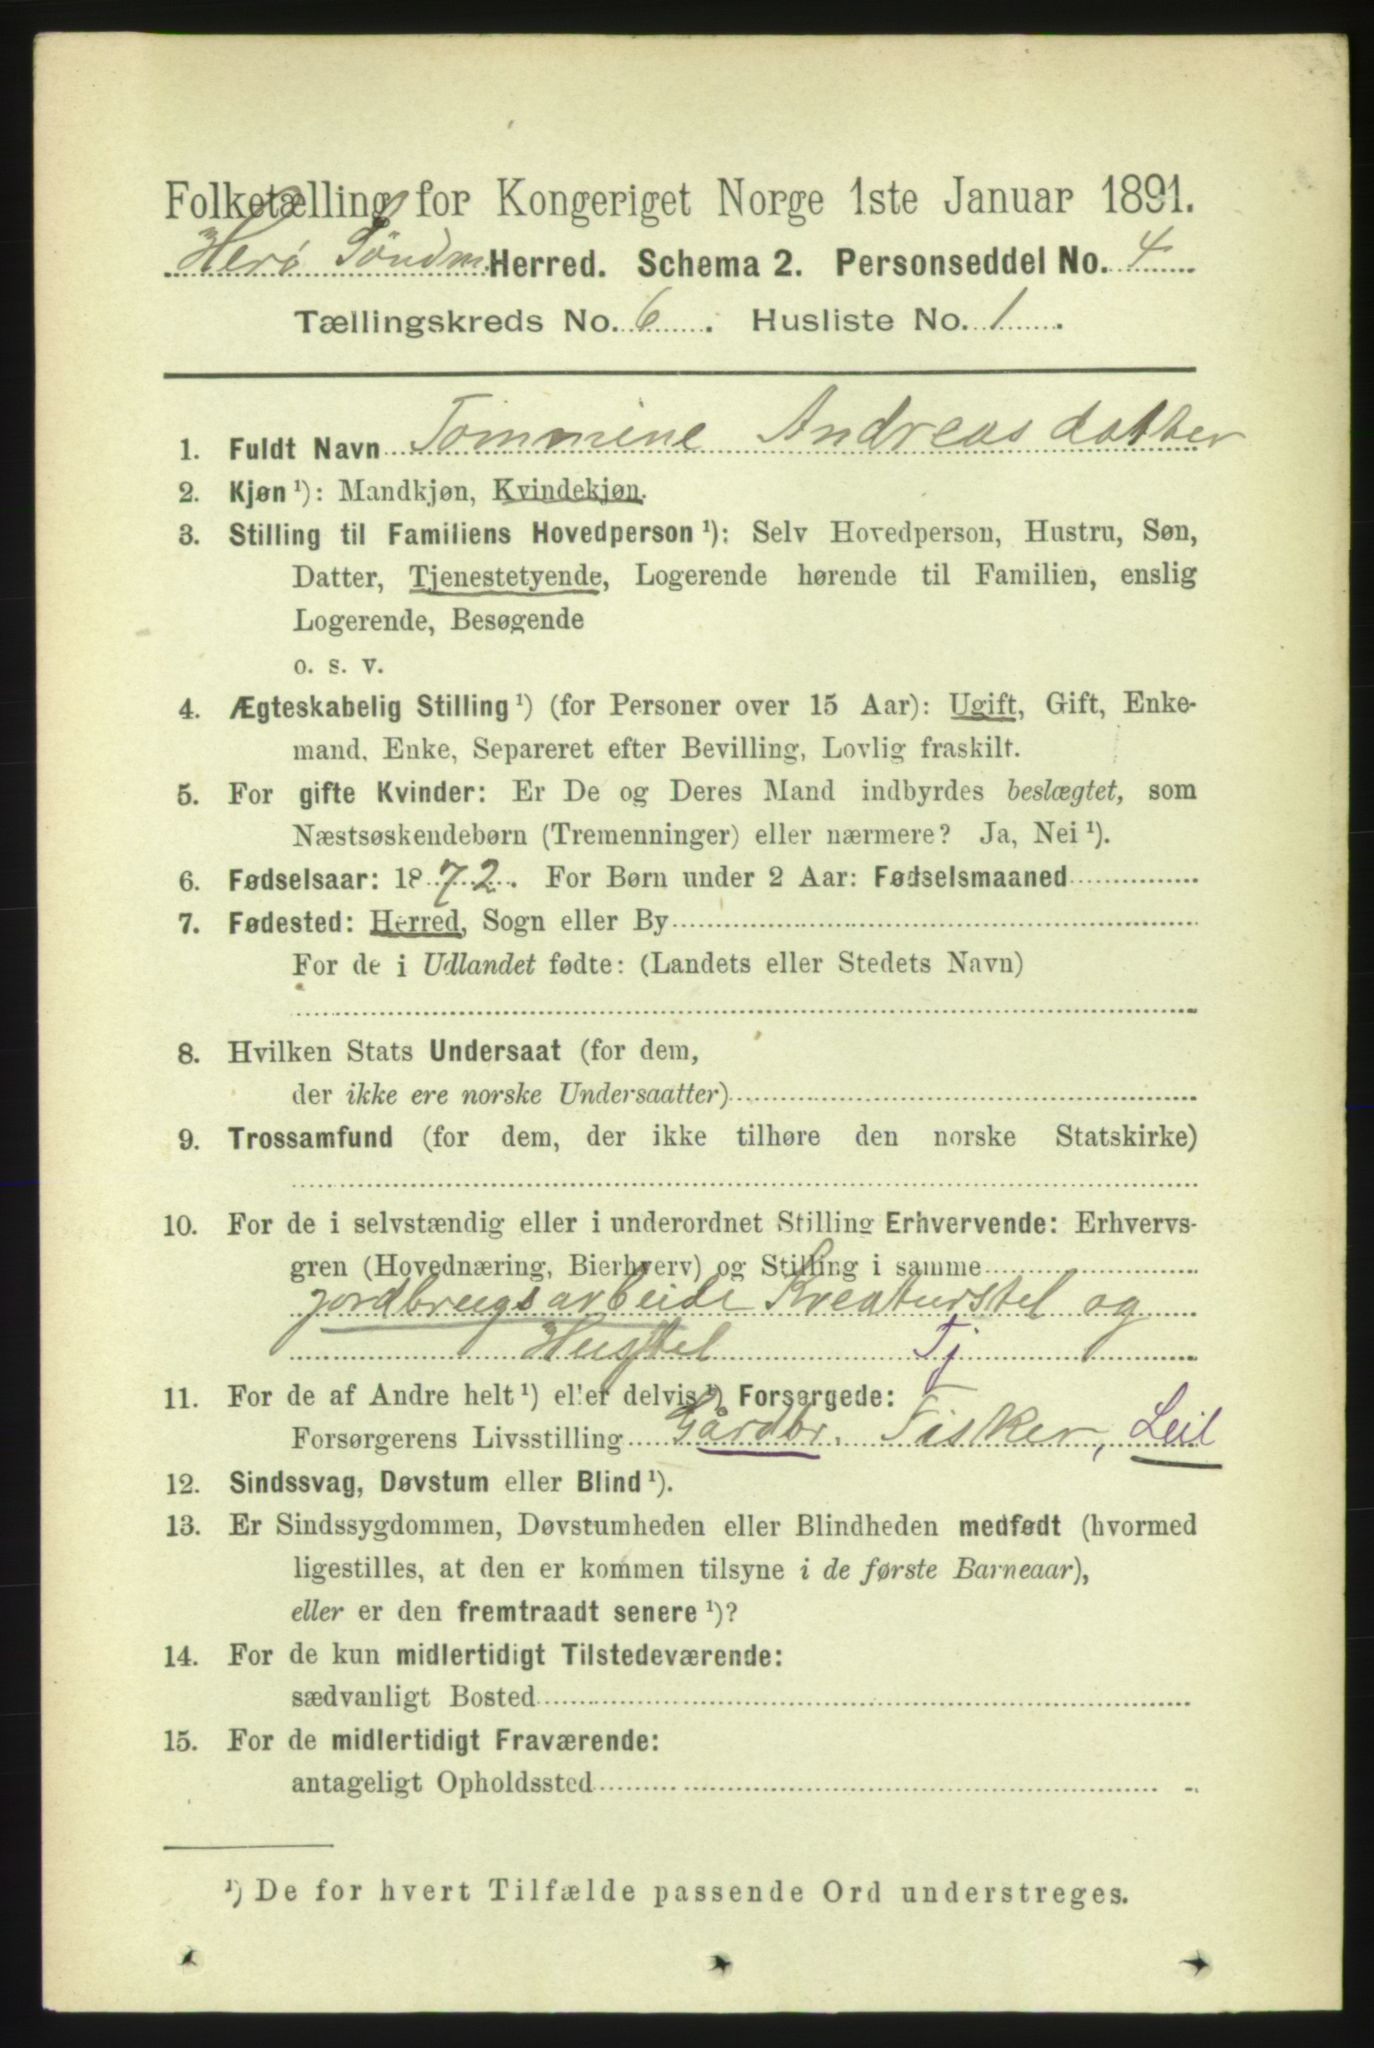 Folketælling for Kongeriget Norge 1ste Januar 1891.
Herø Söndm. Herred. Schema 2. Personseddel No. 4
Tællingskreds No. 6. Husliste No. 1.
1. Fuldt Navn Tommine Andreasdatter
2. Kjøn ¹): Mandkjøn, Kvindekjøn.
3. Stilling til Familiens Hovedperson ¹): Selv Hovedperson, Hustru, Søn,
Datter, Tjenestetyende, Logerende hørende til Familien, enslig
Logerende, Besøgende
o. s. v.
4. Ægteskabelig Stilling ¹) (for Personer over 15 Aar): Ugift, Gift, Enke-
mand, Enke, Separeret efter Bevilling, Lovlig fraskilt.
5. For gifte Kvinder: Er De og Deres Mand indbyrdes beslægtet, som
Næstsøskendebørn (Tremenninger) eller nærmere? Ja, Nei ¹).
6. Fødselsaar: 1872. For Børn under 2 Aar: Fødselsmaaned
7. Fødested: Herred, Sogn eller By
For de i Udlandet fødte: (Landets eller Stedets Navn)
8. Hvilken Stats Undersaat (for dem,
der ikke ere norske Undersaatter)
9. Trossamfund (for dem, der ikke tilhøre den norske Statskirke)
10. For de i selvstændig eller i underordnet Stilling Erhvervende: Erhvervs-
gren (Hovednæring, Bierhverv) og Stilling i samme
jordbrugsarbeide Kreaturstel og
Husstel Tj
11. For de af Andre helt ¹) eller delvis ¹) Forsørgede:
Forsørgerens Livsstilling Gårdbr. Fisker, Leil
12. Sindssvag, Døvstum eller Blind ¹).
13. Er Sindssygdommen, Døvstumheden eller Blindheden medfødt (hvormed
ligestilles, at den er kommen tilsyne i de første Barneaar),
eller er den fremtraadt senere ¹)?
14. For de kun midlertidigt Tilstedeværende:
sædvanligt Bosted
15. For de midlertidigt Fraværende:
antageligt Opholdssted
¹) De for hvert Tilfælde passende Ord understreges.